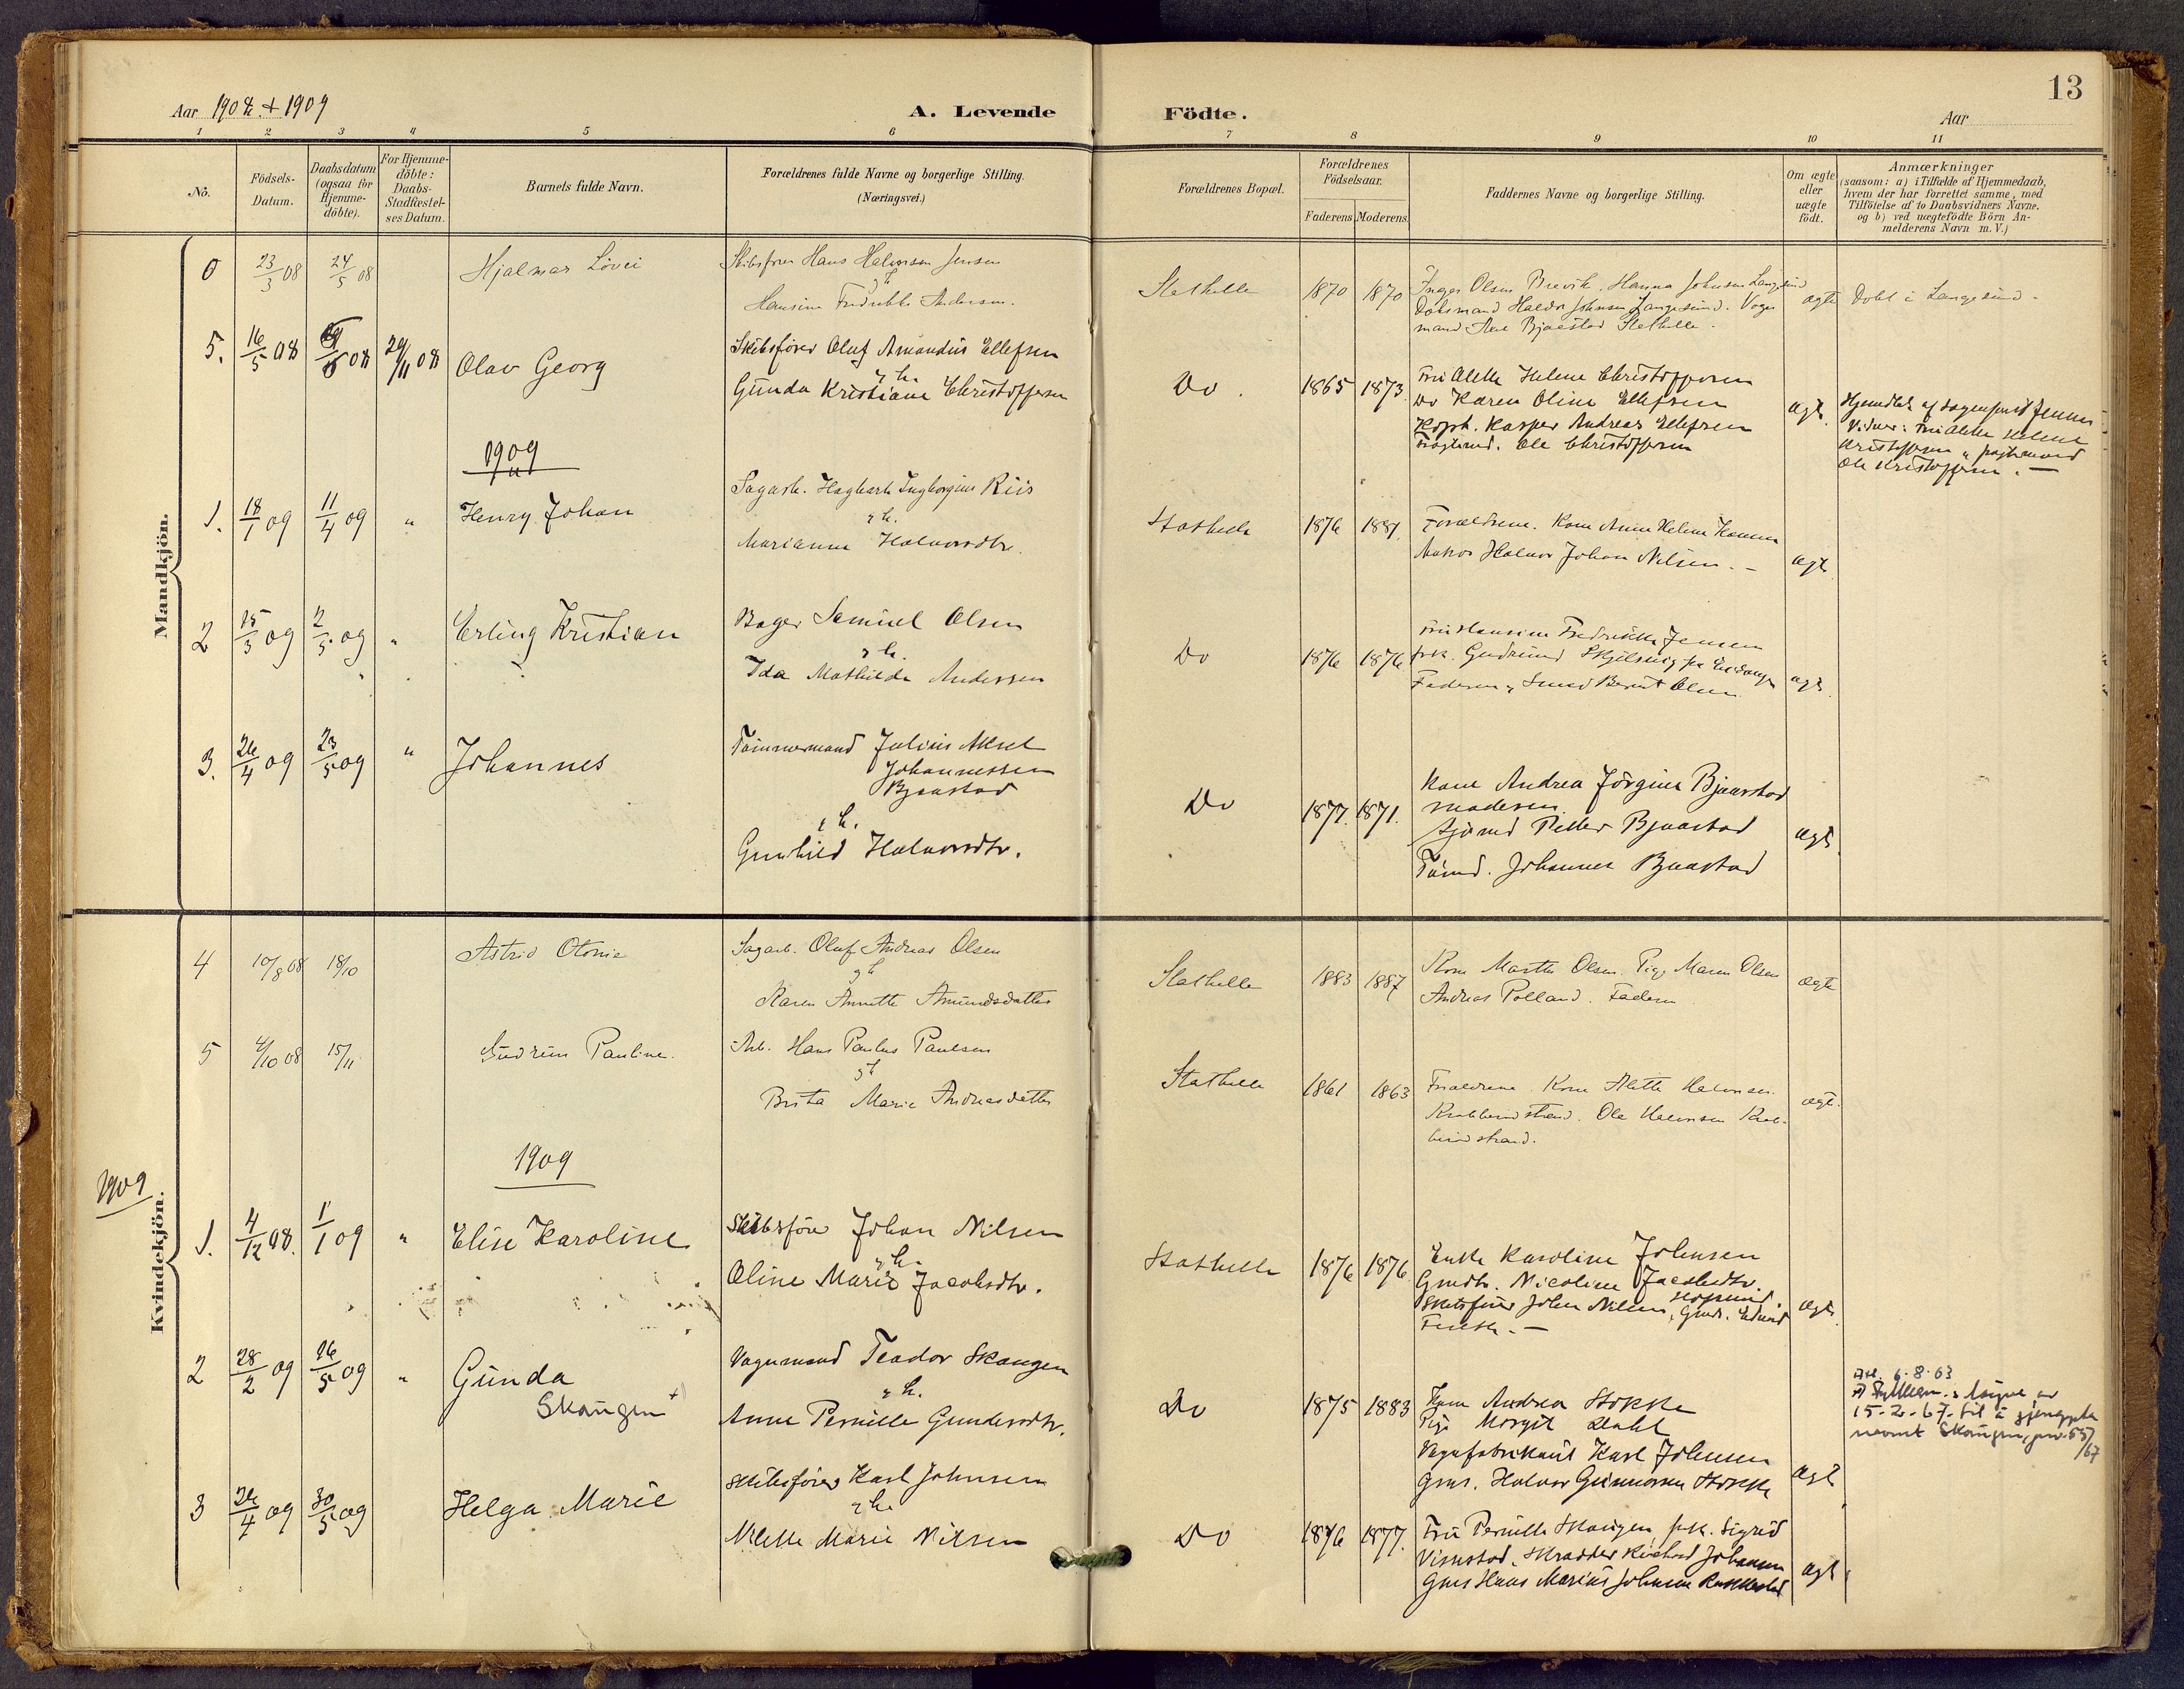 13
Aar 1908 + 1909
A. Levende Födte.
Aar
1 2 3 4 5 6 7 8 9 10 11
No.
Födsels-Datum.
Daabsdatum (ogsaa for Hjemme-döbte).
For Hjemme-döbte: Daabs-Stadfæstel-ses Datum.
Barnets fulde Navn.
Forældrenes fulde Navne og borgerlige Stilling.
(Næringsvei.)
Forældrenes Bopæl.
Forældrenes Födselsaar.
Faderens Moderens
Faddernes Navne og borgerlige Stilling.
Om ægte eller uægte födt.
Anmærkninger
(saasom: a) i Tilfælde af Hjemmedaab,
hvem der har forrettet samme, med
Tilföielse af to Daabsvidners Navne.
og b) ved uægtefödte Börn An-
melderens Navn m. V.)
Mandkjön.
0 23/3 08 24/5 08 Hjalmar Lövei
Skibsfører Hans Halvorsen Jensen
Hansine Fredrikke Andersen.
Stathelle 1870 1870
Inger Olsen Brevik. Hanna Johnsen Langesund
Johnsen Langesund. Vogn
mand Bjaastad Stathelle.
ægte
Döbt i Langesund.
5. 16/5 08 29/11 08 Olav Georg
Skibsfører Oluf Amandus Ellefsen
& h.
Gunda Kristiane Christoffersen
Do. 1865 1873
Fru Alette Helene Christoffersen
Do Karen Oline Ellefsen
Kasper Andreas Ellefsen
Ole Christoffersen
ægt.
Vidner: Fru Alette Helene
Kristoffersen
Ole Kristoffersen. —
1909
1. 18/1 09 11/4 09 " Henry Johan
Sagarb. Hagbart Ingborgius Riis
& h.
Marianne Halvorsdtr.
Stathelle 1876 1881
Forældrene. Kone Anne Helene
Halvor Johan Nilsen. –
ægt.
2 15/3 09 2/5 09 " Erling Kristian
Bager Samuel Olsen
& h.
Ida Mathilde Andersen
Do 1876 1876
Fru Hansine Fredrikke Jensen
frk. Gudrund
Faderen, Smed Bernt Olsen
ægt.
3. 26/4 09 23/5 09 " Johannes
Tømmermand Julius Aksel
Johannessen
Bjaastad
& h.
Gunhild Halvorsdtr.
Do 1877. 1871.
Kone Andrea Jörgine Bjaastad
moderen
Sjømd Petter Bjaastad
Tømd. Johannes Bjaastad
ægt
Kvindekjön.
4 10/8 08 18/10 Astrid Otonie
Sagarb. Oluf Andreas Olsen
Karen Annette Amundsdatter
Stathelle 1883 1887
Kone Marthe Olsen. Pige Maren Olsen
Andreas Polland. Faderen
ægte
5 4/10 08 15/11 Gudrun Pauline.
Arb. Hans Paulus Paulsen
Berta Marie Andreasdatter
Stathelle 1861 1863
Forældrene. Kone Alette Halvorsen.
Krabberødstrand. Ole Halvorsen Krab-
berødstrand.
ægt.
1909
1909
1. 4/12 08. 1/1 09 " Elise Karoline
Skibsfører Johan Nilsen
& h.
Oline Marie Jacobsdtr.
Stathelle 1876 1876
Enke Karoline Johnsen
Nicoline Jacobsdtr.
Skibsfører Johan Nilsen, Gmd.
ægt.
2 28/2 09 16/5 09 " Gunda
Skaugen +
Vognmand Teodor Skaugen
& h.
Anne Pernille Gundersdtr.
Do 1875 1883
Kone Andrea Stokke
Pige Margit Dahl
Vognfabrikant Karl Johnsen
Gms. Halvor Gunnarsen Stokke
ægt
Att. 6.8.63
15-2-67. til å gjenoppta
navnet Skaugen, jnr. 55/67
3 24/4 09 30/5 09 Helga Marie
Skibsfører Karl Johnsen
& h.
Nilette Marie Nilsen
Do 1876 1877.
Fru Pernille Skaugen, frk. Sigrid
Vinstad. Skrædder Rikhard Johansen
Gms Hans Marius Johnsen
ægt.